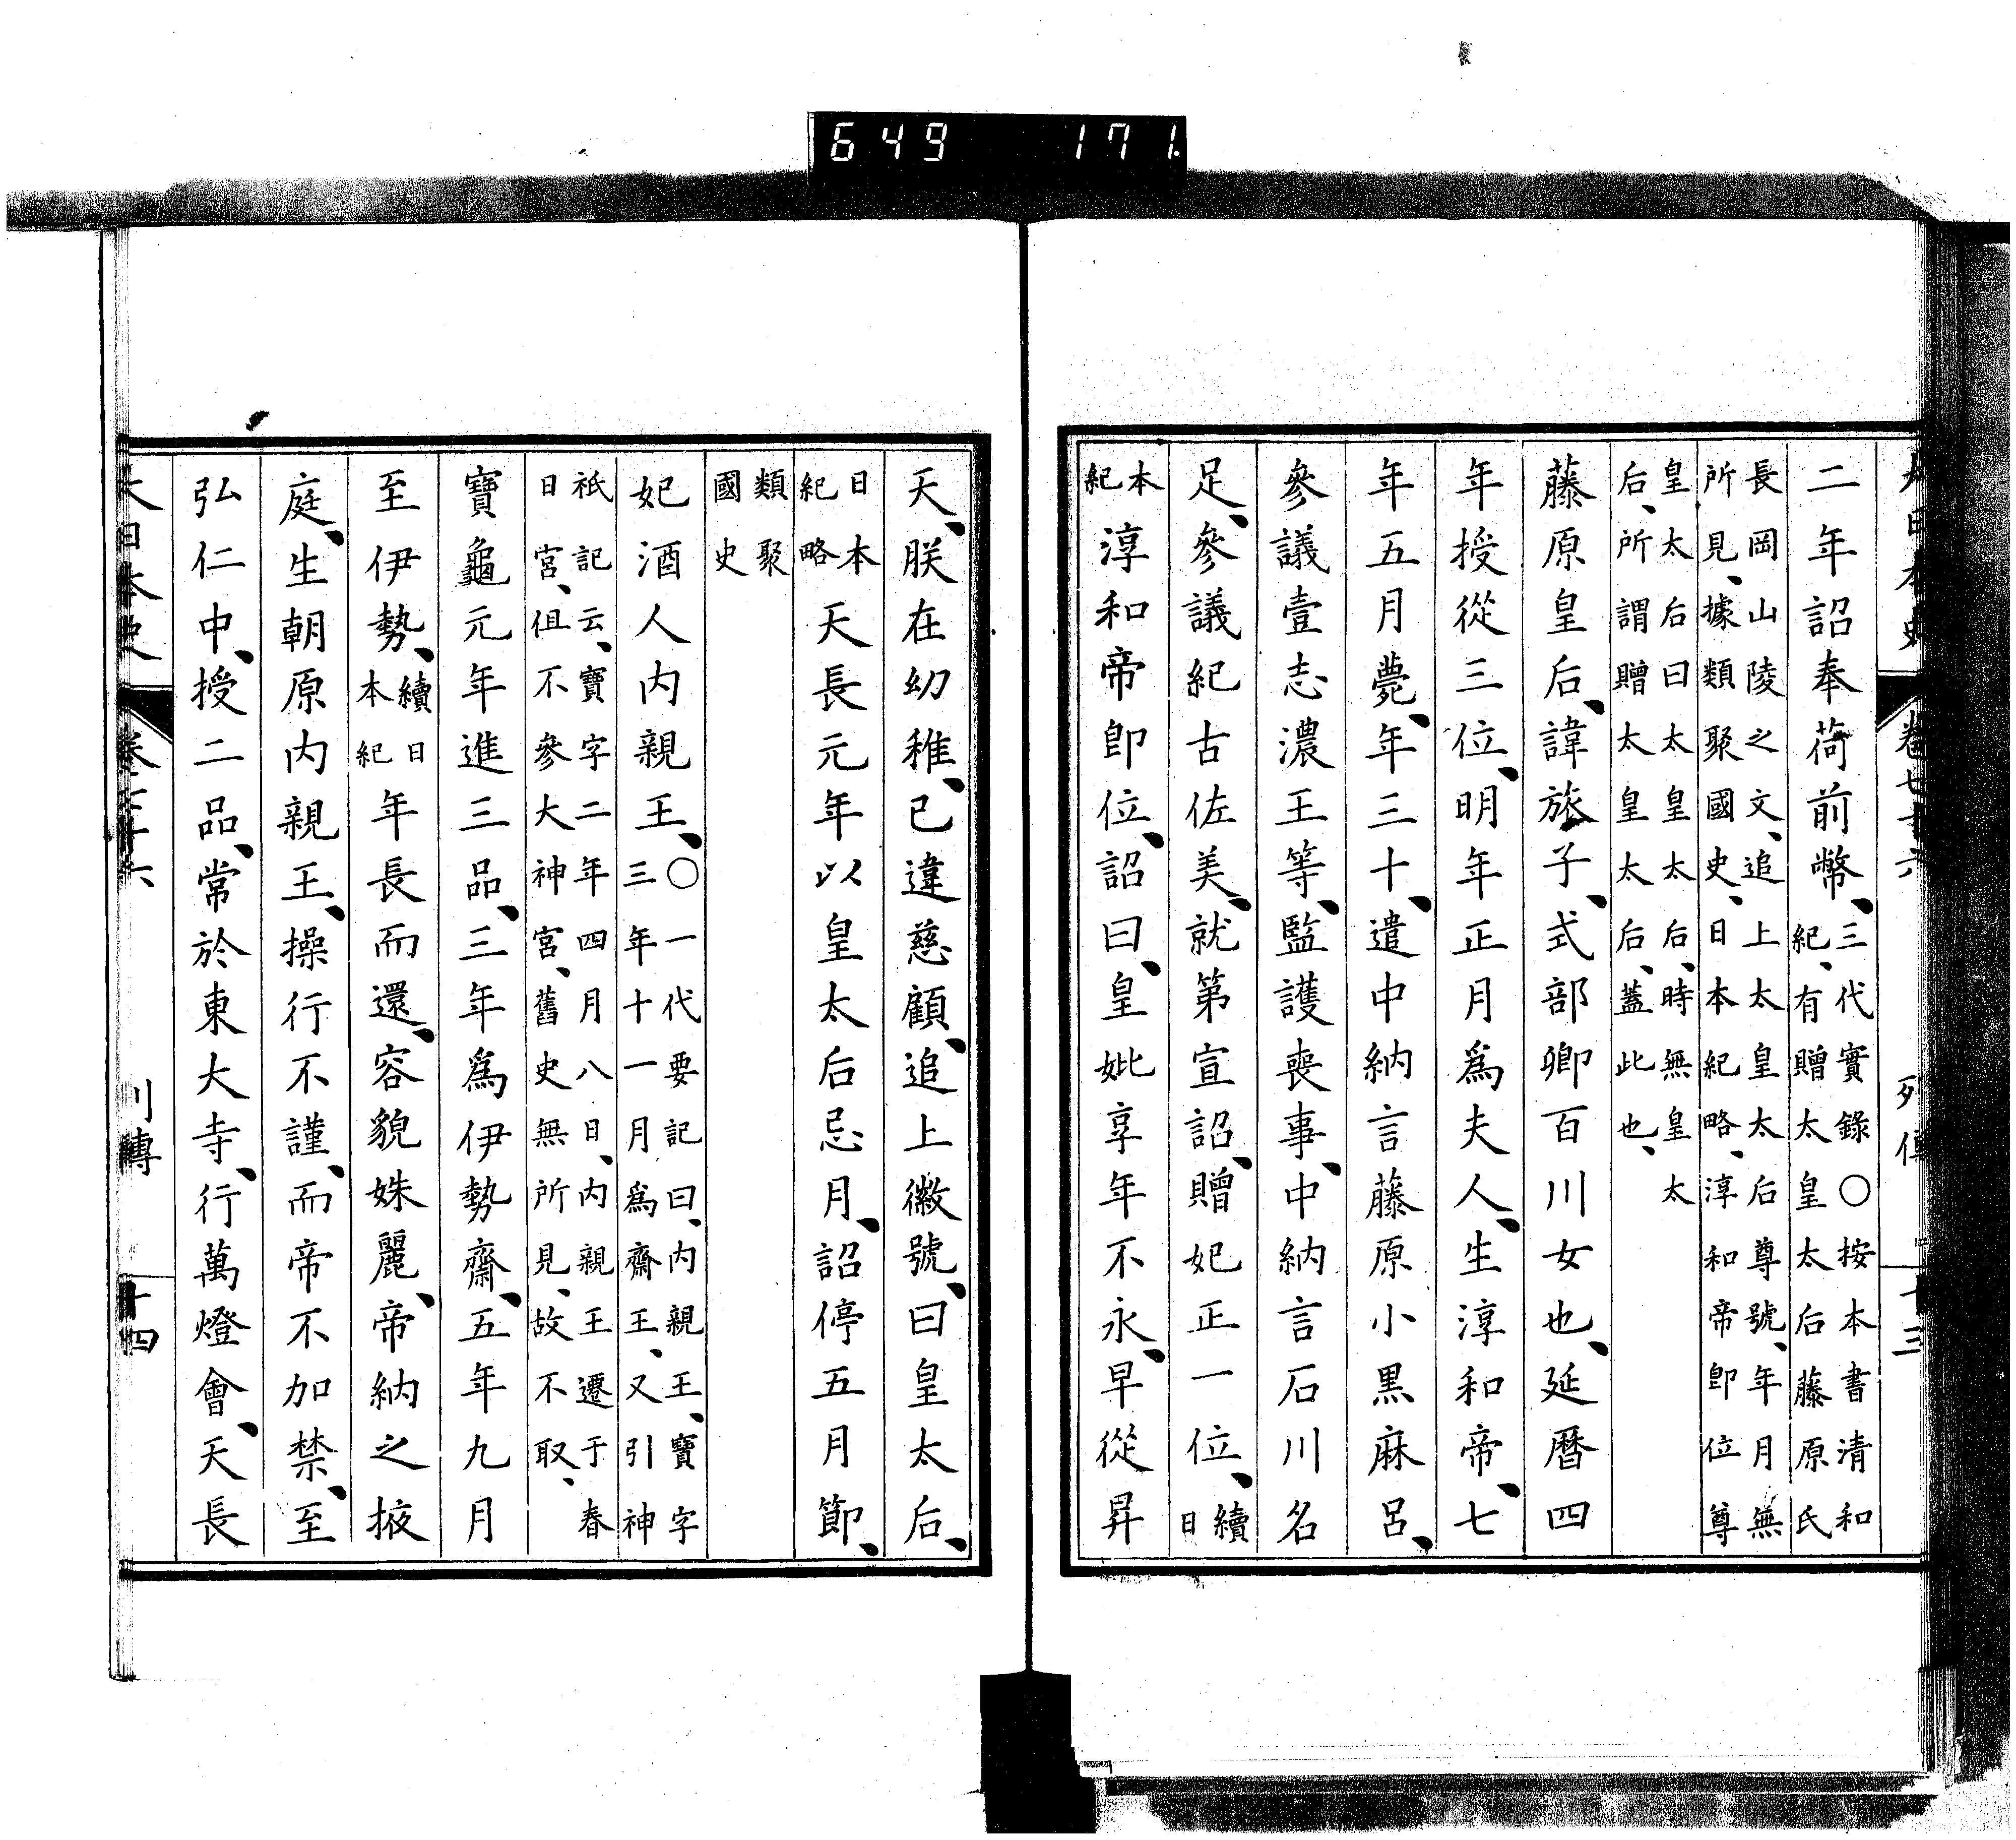 649 171
大日本史 卷七十六 列傳 十三
二年詔奉荷前幣、三代實錄○按本書清和紀、有贈太皇太后藤原氏
長岡山陵之文、追上太皇太后尊號、年月無所見、據類聚國史、日本紀略、淳和帝卽位尊
皇太后曰太皇太后、時無皇太后、所謂贈太皇太后、蓋此也、
藤原皇后、諱旅子、式部卿百川女也、延曆四
年授從三位、明年正月爲夫人、生淳和帝、七
年五月薨、年三十、遣中納言藤原小黑麻呂、
參議壹志濃王等、監護喪事、中納言石川名
足、參議紀古佐美、就第宣詔、贈妃正一位、續日
本紀淳和帝卽位、詔曰、皇妣享年不永、早從昇
天、朕在幼稚、已違慈顧、追上徽號、曰皇太后、
日本紀略天長元年以皇太后忌月、詔停五月節、
類聚國史
妃酒人内親王、○一代要記曰、内親王、寶字三年十一月爲齋王、又引神
祇記云、寶字二年四月八日、内親王遷于春日宮、但不參大神宮、舊史無所見、故不取、
寶龜元年進三品、三年爲伊勢齋、五年九月
至伊勢、續日本紀年長而還、容貌姝麗、帝納之掖
庭、生朝原内親王、操行不謹、而帝不加禁、至
弘仁中、授二品、常於東大寺、行萬燈會、天長
大日本史 卷七十六 列傳 十四